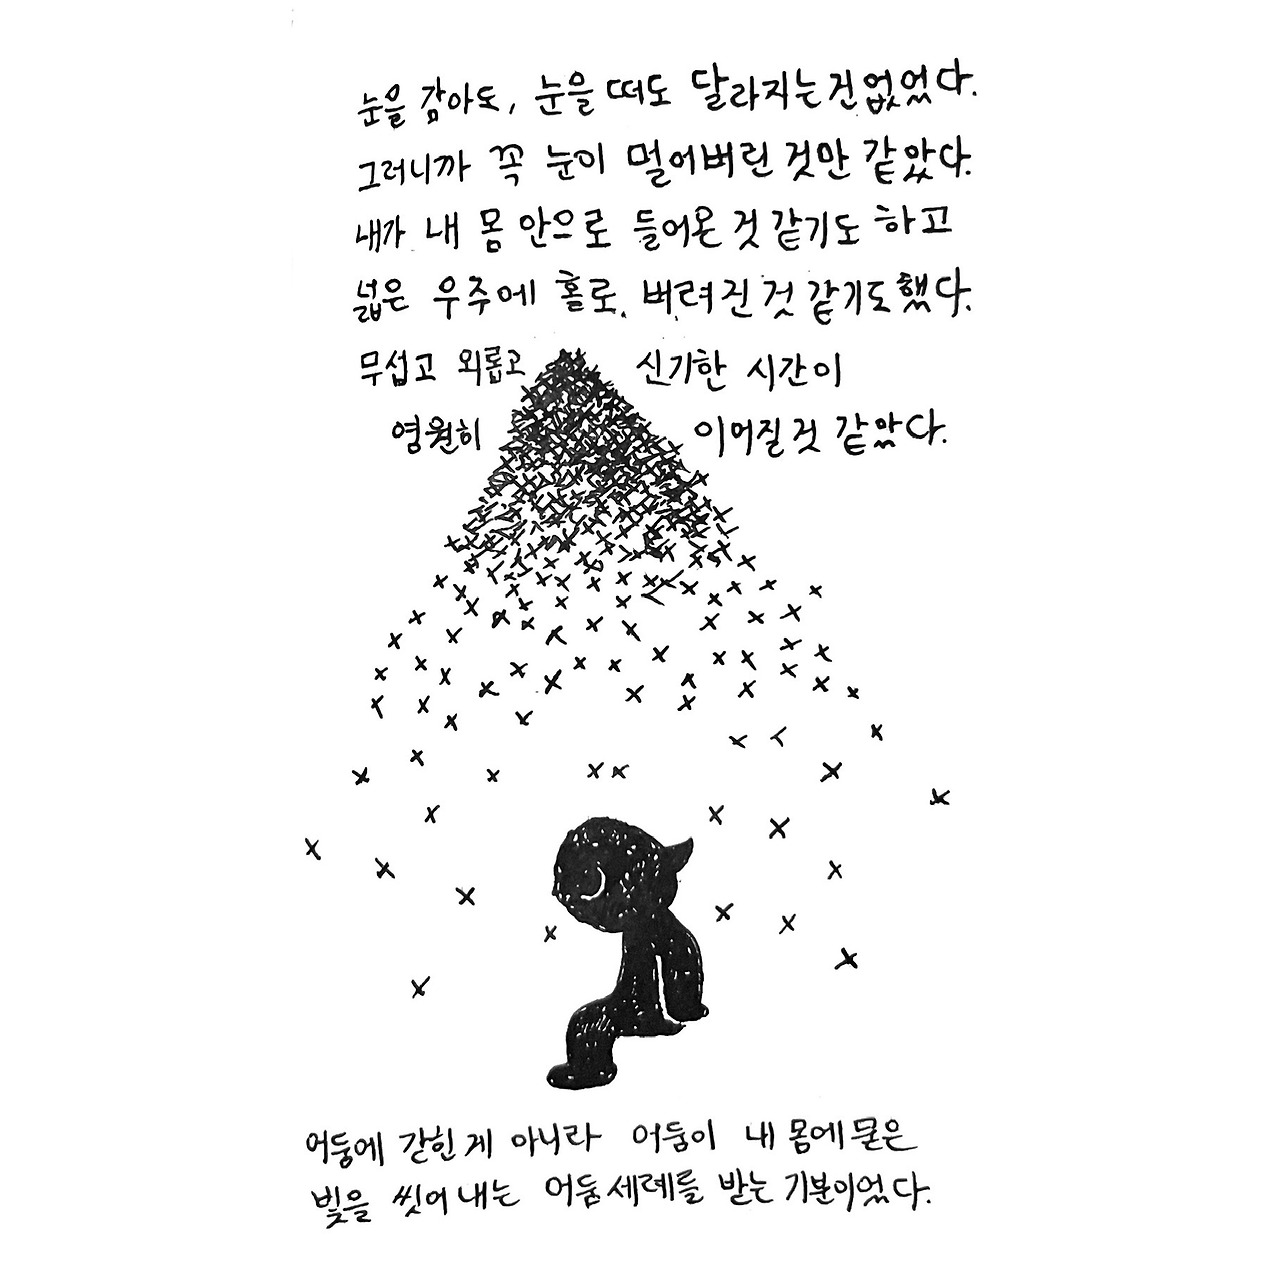 눈을 감아도, 눈을 떠도 달라지는 건 없었다.
그러니까 꼭 눈이 멀어버린 것만 같았다.
내가 내 몸 안으로 들어온 것 같기도 하고
넓은 우주에 홀로 버려진 것 같기도 했다.
무섭고 외롭고 신기한 시간이
영원히 이어질 것 같았다.
어둠에 갇힌 게 아니라 어둠이 내 몸에 묻은
빛을 씻어 내는 어둠 세례를 받는 기분이었다.